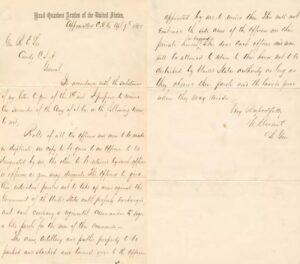 Head Quarters Armies of the United States.
Appomattox C.H. Va. Apl 9th 1865
Gen. R. E. Lee
Comdg C.S.A.
General
In accordance with the substance
of my letter to you of the 8th inst. I propose to receive
the surrender of the Army of N. Va. on the following terms
to wit;
Rolls of all the officers and men to be made
in duplicate one copy to be given to an officer to be
designated by me the other to be retained by such officer
or officers as you may designate. The officers to give
their individual paroles not to take up arms against the
Government of the United States until properly exchanged
and each company or regimental commander to sign
a like parole for the men of their commands.
The arms, artillery and public property to be
parked and stacked and turned over to the officer
appointed by me to receive them. This will not
embrace the side arms of the officers nor their
private horses or baggage. This done each officer and man
will be allowed to return to their homes not to be
disturbed by United States authority so long as
they observe their parole and the laws in force
where they may reside.
Very Respectfully
U.S. Grant
Lt. Gen.